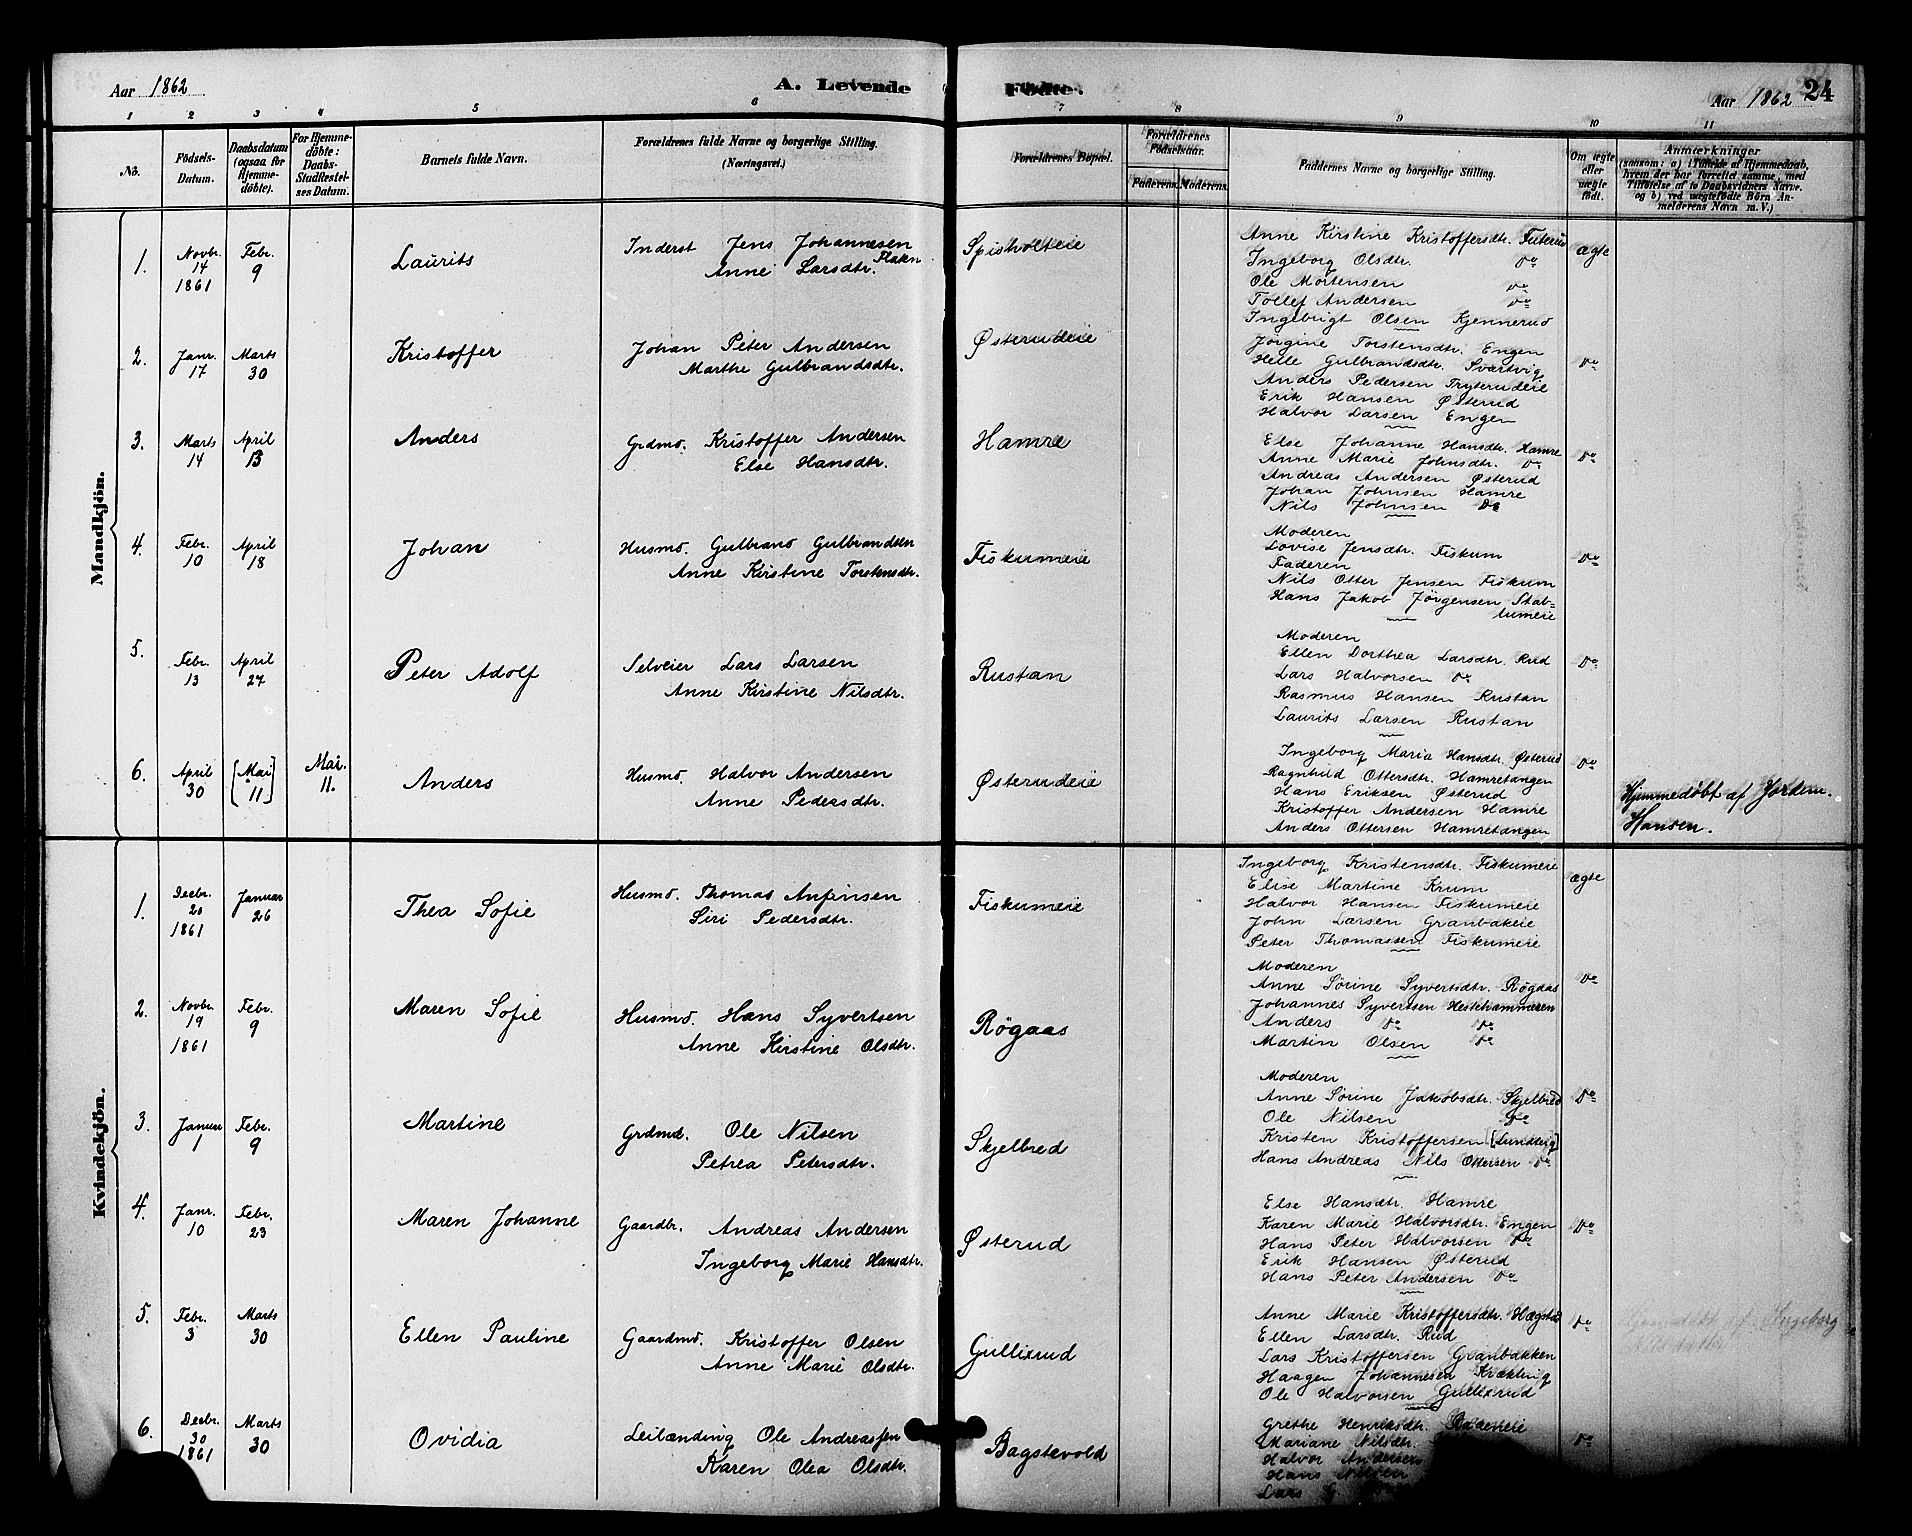 Aar 1862
A. Levende Fødte.
Aar 1862 24
1 2 3 4 5 6 7 8 9 10 11
No.
Födsels-Datum.
Daabsdatum (ogsaa for Hjemme-döbte).
For Hjemme-döbte: Daabs-Stadfæstel-ses Datum.
Barnets fulde Navn.
Forældrenes fulde Navne og borgerlige Stilling. (Næringsvei.)
Forældrenes Bopæl.
Forældrenes Födselsaar.
Faderens. Moderens.
Faddernes Navne og borgerlige Stilling.
Om ægte eller uægte födt.
Anmærkninger
(saasom: a) i Tilfælde af Hjemmedaab, hvem der har forrettet samme, med Tilföielse af to Daabsvidners Navne, og b) ved uægtefödte Börn An-melderens Navn m. V.)
Mandkjön.
1. Novbr. 14 1861 Febr. 9 Laurits
Inderst Jens Johannesen
Anne Larsdtr. Platen
Spisholteie
Anne Kirstine Kristoffersdtr. Futerud
Ingeborg Olsdtr. Do
Ole Mortensen Do
Tollef Andersen Do
Ingebrigt Olsen Kjennerud
ægte
2. Janr. 17 Marts 30 Kristoffer
Johan Peter Andersen
Marthe Gulbrandsdtr.
Østerudeie
Jørgine Torstensdtr. Engen
Helle Gulbrandsdtr. Svartvig
Anders Pedersen Tryterudeie
Erik Hansen Østerud
Halvor Larsen Engen
Do
3. Marts 14 April 13 Anders
Grdmd. Kristoffer Andersen
Else Hansdtr.
Hamre
Else Johanne Hansdtr. Hamre
Anne Marie Johnsdtr. Do
Andreas Andersen Østerud
Johan Johnsen Hamre
Nils Johnsen Do
Do
4. Febr. 10 April 18 Johan
Husmd. Gulbrand Gulbrandsen
Anne Kirstine Torstensdtr.
Fiskumeie
Moderen
Lovise Jensdtr. Fiskum
Faderen
Nils Otter Jensen Fiskum
Hans Jakob Jørgensen Stab=
lumeie
Do
5. Febr. 13 April 27 Peter Adolf
Selveier Lars Larsen
Anne Kirstine Nilsdtr.
Rustan
Moderen
Ellen Dorthea Larsdtr. Rud
Lars Halvorsen Do
Rasmus Hansen Rustan
Laurits Larsen Rustan
Do
6. April 30 [Mai 11] Mai. 11. Anders
Husmd. Halvor Andersen
Anne Pedersdtr.
Østerudeie
Ingeborg Maria Hansdtr. Østerud
Ragnhild Ottersdtr. Hamretangen
Hans Eriksen Østerud
Kristoffer Andersen Hamre
Anders Ottersen Hamretangen
Do
Hjemmedøbt af Jordem.
Hansen.
Kvindekjön.
1. Decbr. 20 1861 Januar 26 Thea Sofie
Husmd. Thomas Anfinsen
Siri Pedersdtr.
Fiskumeie
Ingeborg Kristensdtr. Fiskumeie
Elise Martine Krum
Halvor Hansen Fiskumeie
John Larsen Granbakeie
Peter Thomassen Fiskumeie
ægte
2. Novbr. 19 1861 Febr. 9 Maren Sofie
Husmd. Hans Syvertsen
Anne Kirstine Olsdtr.
Røgaas
Moderen
Anne Sørine Syvertsdtr. Røgaas
Johannes Syvertsen Hestehammeren
Anders Do Do
Martin Olsen Do
Do
3. Januar 1 Febr. 9 Martine
Grdmd. Ole Nilsen
Petrea Petersdtr.
Skjelbred
Moderen
Anne Sørine Jakobsdtr. Skjelbred
Ole Nilsen Do
Kristen Kristoffersen [Lundberg]
Hans Andreas Nils Ottersen Do
Do
4. Janr. 10 Febr. 23 Maren Johanne
Gaardbr. Andreas Andersen
Ingeborg Marie Hansdtr.
Østerud
Else Hansdtr. Hamre
Karen Marie Halvorsdtr. Engen
Hans Peter Halvorsen Do
Erik Hansen Østerud
Hans Peter Andersen Do
Do
5. Febr. 3 Marts 30 Ellen Pauline
Gaardmd. Kristoffer Olsen
Anne Marie Olsdtr.
Gullixrud
Anne Marie Kristoffersdtr. Hægstad
Ellen Larsdtr. Rud
Lars Kristoffersen Granbakken
Haagen Johannesen Krækling
Ole Halvorsen Gullixrud
Do
6. Decbr. 30 1861 Marts 30 Ovidia
Leilænding Ole Andreassen
Karen Olea Olsdtr.
Bagstevold
Grethe Henriksdtr.
Mariane Nilsdtr.
Halvor Andersen
Hans
Lars
Do